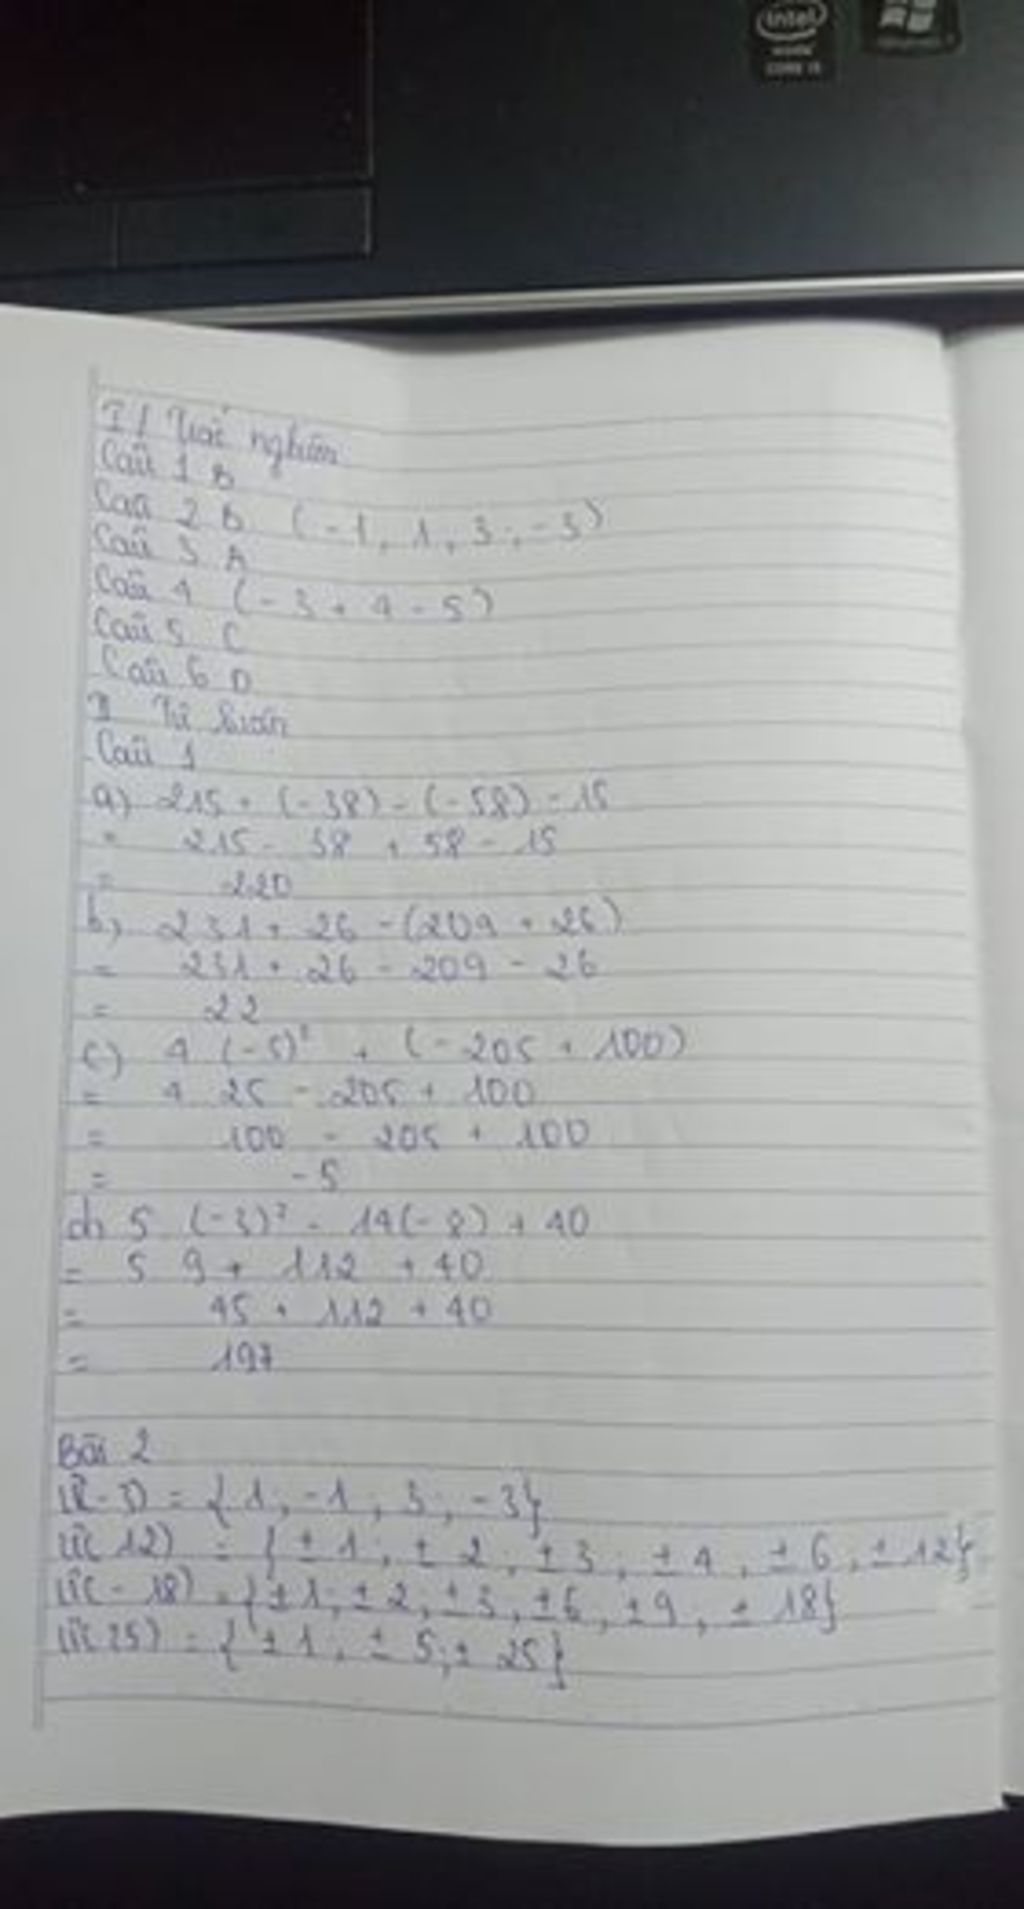 intel
inside
CORE i5
I / Trắc nghiệm
Câu 1 B
Câu 2 B (-1, 1, 3, -3)
Câu 3 A
Câu 4 (-3 + 4 - 5)
Câu 5 C
Câu 6 D
II Tự luận
Câu 1
a) 215 + (-38) - (-58) - 15
= 215 - 38 + 58 - 15
= 220
b) 231 + 26 - (209 + 26)
= 231 + 26 - 209 - 26
= 22
c) 4 (-5)² + (-205 + 100)
= 4 25 - 205 + 100
= 100 - 205 + 100
= -5
d) 5 (-3)² - 14(-8) + 40
= 5 9 + 112 + 40
= 45 + 112 + 40
= 197
Bài 2
Ư(-3) = {1, -1, 3, -3}
Ư(12) = {±1; ±2; ±3; ±4, ±6, ±12}
Ư(-18) = {±1; ±2, ±3, ±6, ±9, ±18}
Ư(25) = {±1; ±5; ±25}